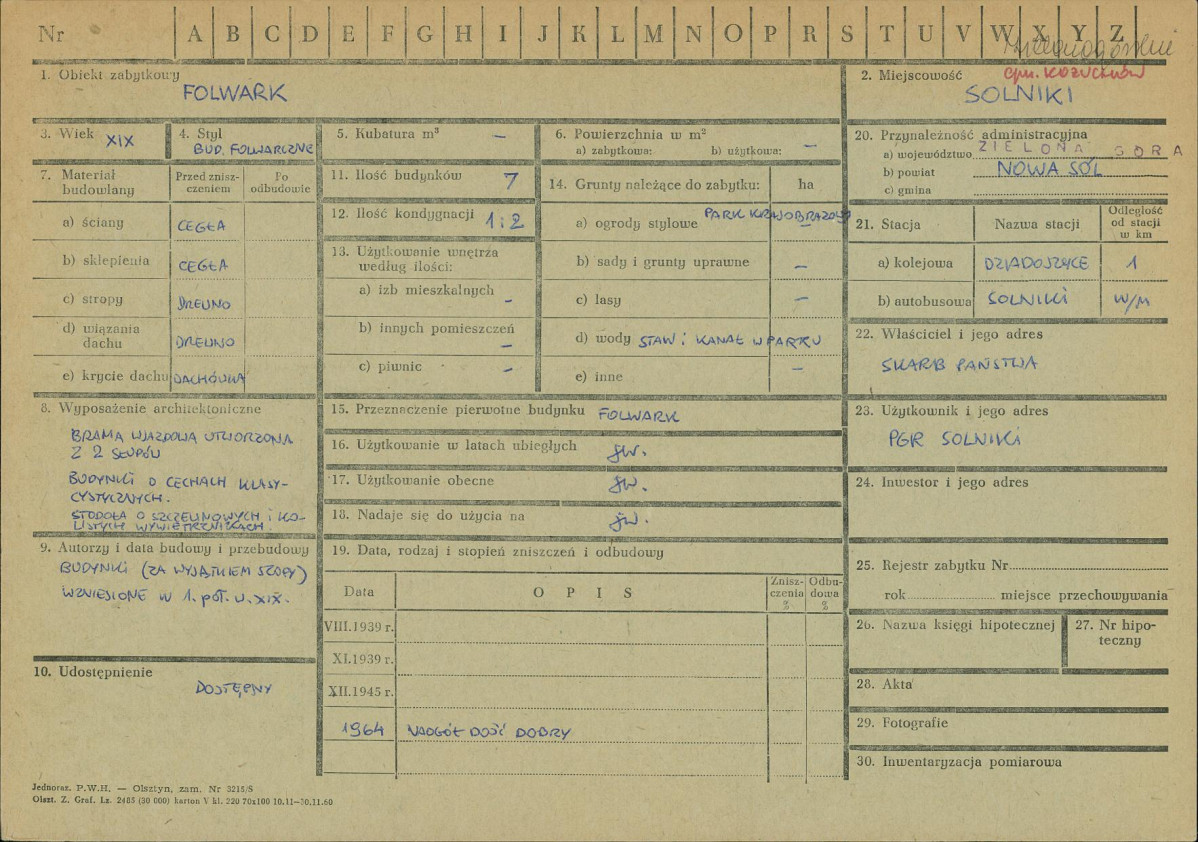 Nr A B C D E F G H I J K L M N O P R S T U V W X Y Z
1. Obiekt zabytkowy
FOLWARK
2. Miejscowość
gm. KOŻUCHÓW
SOLNIKI
3. Wiek XIX
4. Styl
BUD. FOLWARCZNE
5. Kubatura m³ —
6. Powierzchnia w m²
a) zabytkowa: b) użytkowa: —
7. Materiał budowlany
Przed zniszczeniem
Po odbudowie
a) ściany CEGŁA
b) sklepienia CEGŁA
c) stropy DREWNO
d) wiązania dachu DREWNO
e) krycie dachu DACHÓWKA
8. Wyposażenie architektoniczne
BRAMA WJAZDOWA UTWORZONA
Z 2 SŁUPÓW
BUDYNKI O CECHACH KLASY-
CYSTYCZNYCH.
STODOŁA O SZCZELINOWYCH I KO-
LISTYCH WYWIETRZNIKACH.
9. Autorzy i data budowy i przebudowy
BUDYNKI (ZA WYJĄTKIEM SZOPY)
WZNIESIONE W 1. POŁ. W. XIX.
10. Udostępnienie
DOSTĘPNY
11. Ilość budynków 7
12. Ilość kondygnacji 1 i 2
13. Użytkowanie wnętrza
według ilości:
a) izb mieszkalnych –
b) innych pomieszczeń –
c) piwnic –
14. Grunty należące do zabytku: ha
a) ogrody stylowe PARK KRAJOBRAZOWY –
b) sady i grunty uprawne –
c) lasy –
d) wody STAW i KANAŁ W PARKU
e) inne –
15. Przeznaczenie pierwotne budynku FOLWARK
16. Użytkowanie w latach ubiegłych jw.
17. Użytkowanie obecne jw.
18. Nadaje się do użycia na jw.
19. Data, rodzaj i stopień zniszczeń i odbudowy
Data
OPIS
Znisz-
czenia
%
Odbu-
dowa
%
VIII.1939 r.
XI.1939 r.
XII.1945 r.
1964 NAOGÓŁ DOŚĆ DOBRY
20. Przynależność administracyjna
a) województwo ZIELONA GÓRA
b) powiat NOWA SÓL
c) gmina
21. Stacja
Nazwa stacji
Odległość
od stacji
w km
a) kolejowa DZIADOSZYCE 1
b) autobusowa SOLNIKI W/M
22. Właściciel i jego adres
SKARB PAŃSTWA
23. Użytkownik i jego adres
PGR SOLNIKI
24. Inwestor i jego adres
25. Rejestr zabytku Nr
rok miejsce przechowywania
26. Nazwa księgi hipotecznej
27. Nr hipo-
teczny
28. Akta
29. Fotografie
30. Inwentaryzacja pomiarowa
Jednoraz. P.W.H. — Olsztyn, zam. Nr 3215/S
Olszt. Z. Graf. Lz. 2485 (30 000) karton V kl. 220 70x100 10.11—30.11.60